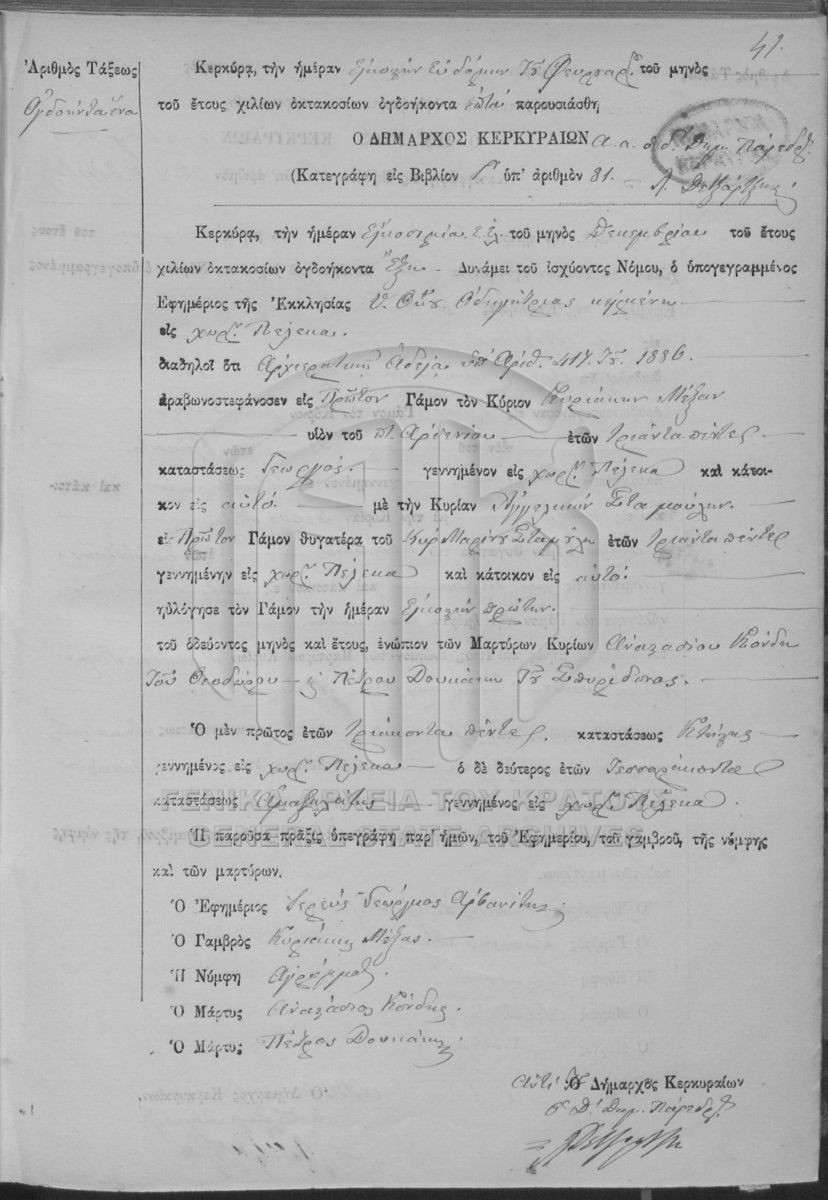 41.
Ἀριθμὸς Τάξεως
Ὀγδοήντα ἕνα
Κερκύρα, τὴν ἡμέραν εἰκοστὴν ἑβδόμην τοῦ Φευρουαρ. τοῦ μηνὸς
τοῦ ἔτους χιλίων ὀκτακοσίων ὀγδοήκοντα ἑπτά παρουσιάσθη
Ο ΔΗΜΑΡΧΟΣ ΚΕΡΚΥΡΑΙΩΝ Α. α. ὁ δ. Δημ. Πάρεδρ.
(Κατεγράφη εἰς Βιβλίον ὑπ' ἀριθμὸν 81. —
Κερκύρα, τὴν ἡμέραν τοῦ μηνὸς Δεκεμβρίου τοῦ ἔτους
χιλίων ὀκτακοσίων ὀγδοήκοντα Ἕξη — Δυνάμει τοῦ ἰσχύοντος Νόμου, ὁ ὑπογεγραμμένος
Ἐφημέριος τῆς Ἐκκλησίας Υ. Θκου Ὁδιγήτριας κειμένη —
εἰς χωρ. Πέλεκα.
διαδηλοῖ ὅτι Ἀρχιερατικῇ Ἀδείᾳ ὑπ' Ἀριθ. 417 τοῦ 1886.
ἀραβωνοστεφάνοσεν εἰς Πρῶτον Γάμον τὸν Κύριον Κυριάκην Μέξαν
υἱὸν τοῦ π. Ἀρσενίου — ἐτῶν τριάντα πέντε —
καταστάσεως Γεωργός. — γεννημένον εἰς χωρ. Πέλεκα καὶ κάτοι-
κον εἰς αὐτό. — μὲ τὴν Κυρίαν Ἀγγελικὴν Σταμούλην.
εἰς Πρῶτον Γάμον θυγατέρα τοῦ Κυρ Μαρίνου Σταμούλη ἐτῶν τριάντα πέντε
γεννημένην εἰς χωρ. Πέλεκα καὶ κάτοικον εἰς αὐτό. —
ηὐλόγησε τὸν Γάμον τὴν ἡμέραν εἰκοστὴν πρώτην. —
τοῦ ὁδεύοντος μηνὸς καὶ ἔτους, ἐνώπιον τῶν Μαρτύρων Κυρίων Ἀναστασίου Κόνδη
τοῦ Θεοδώρου — κ Πέτρου Δουκάκη τοῦ Σπυρίδονος. —
Ὁ μὲν πρῶτος ἐτῶν τριάκοντα πέντε. καταστάσεως Κτήστης —
γεννημένος εἰς χωρ. Πέλεκα — ὁ δὲ δεύτερος ἐτῶν Τεσσαράκοντα
καταστάσεως Ἁμαξηλάτης — γεννημένος εἰς χωρ. Πέλεκα.
Ἡ παροῦσα πρᾶξις ὑπεγράφη παρ' ἡμῶν, τοῦ Ἐφημερίου, τοῦ γαμβροῦ, τῆς νύμφης
καὶ τῶν μαρτύρων.
Ὁ Ἐφημέριος Ἱερεὺς Γεώργιος Ἀρβανίτης
Ὁ Γαμβρὸς Κυριάκης Μέξας. —
Ἡ Νύμφη Ἀγράμματ.
Ὁ Μάρτυς Ἀναστάσιος Κόνδης.
Ὁ Μάρτυς Πέτρος Δουκάκης
Ὁ Δήμαρχος Κερκυραίων
ὁ Δ. Δημ. Πάρεδρ.
ΓΕΝΙΚΑ ΑΡΧΕΙΑ ΤΟΥ ΚΡΑΤΟΥΣ
GENERAL STATE ARCHIVES